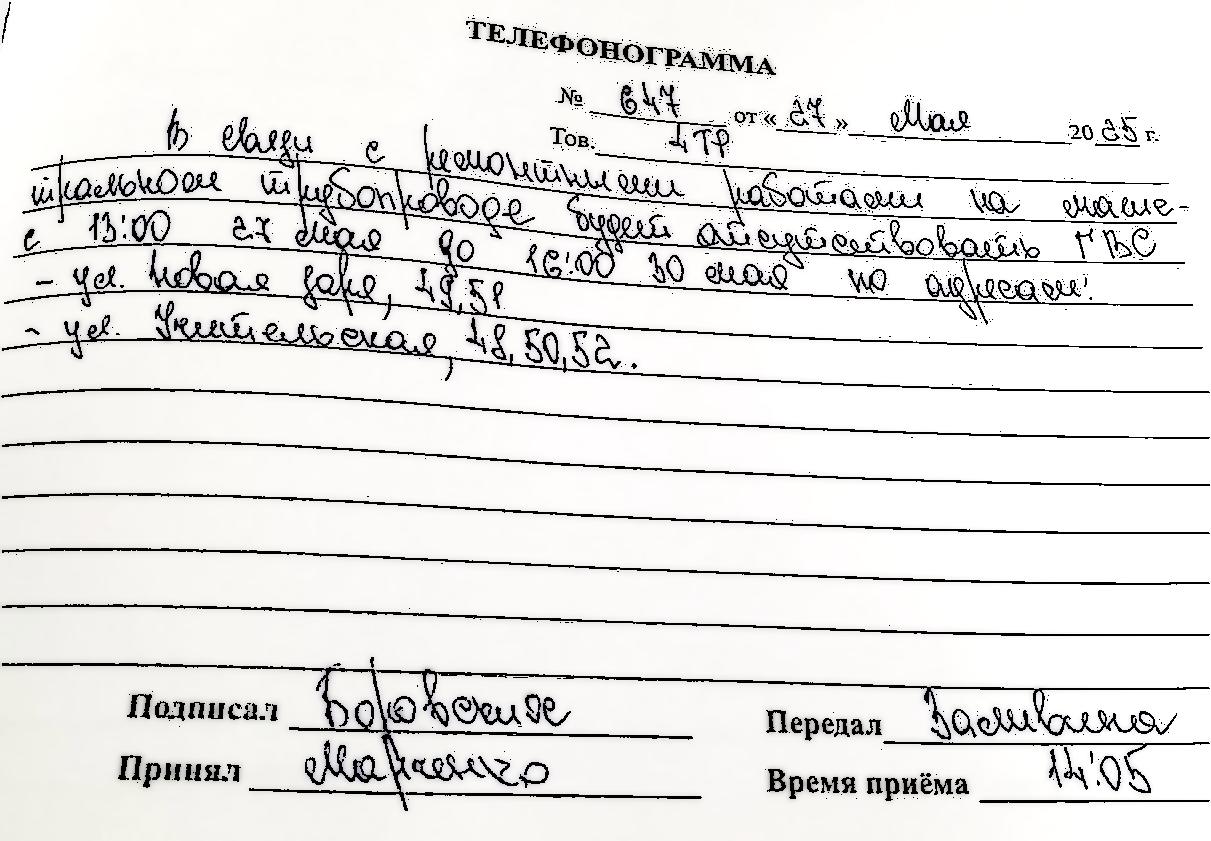 ТЕЛЕФОНОГРАММА
№ 647 от «27» Мая 2025 г.
Тов. 4 ТР
В связи с ремонтными работами на магис-
тральном трубопроводе будет отсутствовать ГВС
с 13:00 27 мая до 16:00 30 мая по адресам:
- ул. Новая заря, 49,51
- ул. Учительская, 48,50,52.
Подписал Боровских Передал
Принял Марченко Время приёма 14:05